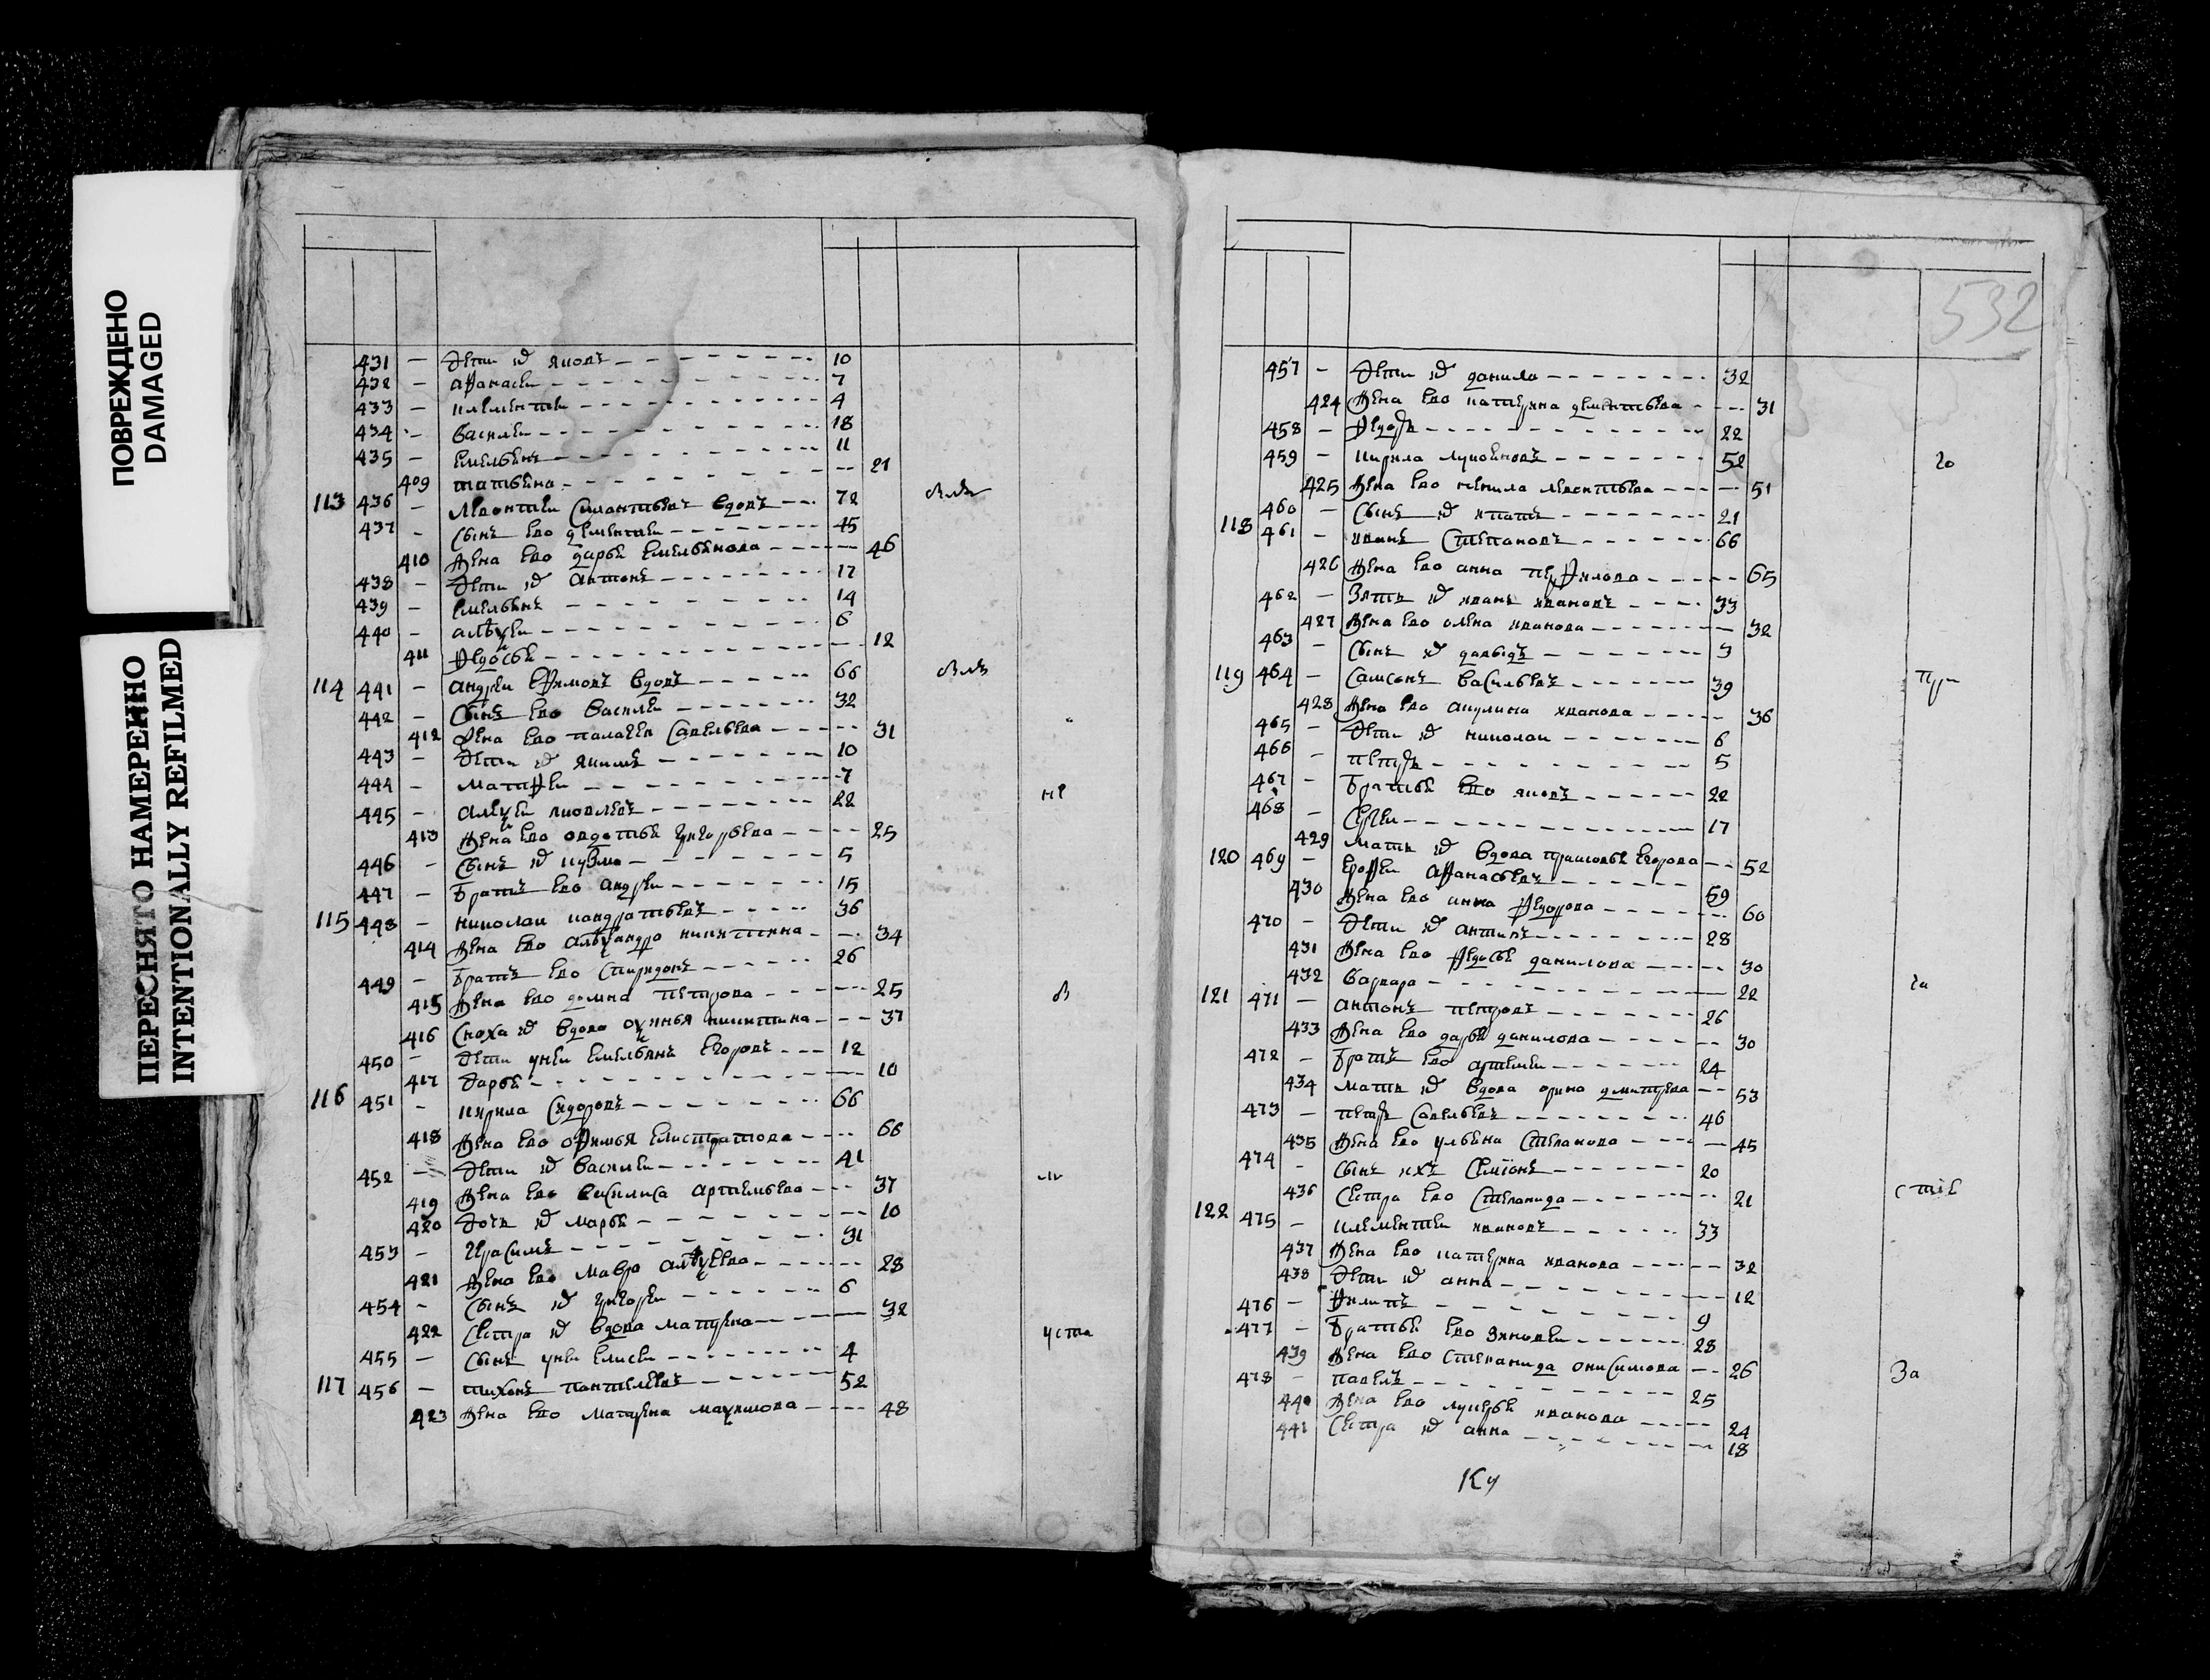 ПОВРЕЖДЕНО
DAMAGED
ПЕРЕСНЯТО НАМЕРЕННО
INTENTIONALLY REFILMED
431 — Дети их яковъ 10
432 — афанасеи 7
433 — климентеи 4
434 — василеи 18
435 — емельѣнъ 11
409 татьѣна 21
113 436 — леонтеи силантьевъ вдовъ 72
437 — сынъ ево дементеи 45
410 жена ево дарьѣ емельѣнова 46
438 — Дети их антонъ 17
439 — емельѣнъ 14
440 — алѣѯеи 6
411 федосьѣ 12
114 441 — андреи ефимовъ вдовъ 66
442 — сынъ ево василеи 32
412 жена ево палагея савельева 31
443 — Дети их якимъ 10
444 — матфеи 7
445 — алѣѯеи яковлевъ 22 не
413 жена ево овдотьѣ григорьева 25
446 — сынъ их кузма 5
447 — братъ ево андреи 15
115 448 — николаи кандратьевъ 36
414 жена ево алѣѯандра никитина 34
449 — братъ ево спиридонъ 26
415 жена ево домна петрова 25 в
416 сноха их вдова оѯинья никитина 37
450 — Дети унеи емельѣнъ егоровъ 12
417 Дарьѣ 10
116 451 — кирила сидоровъ 66
418 жена ево офимья елистратова 66
452 — Дети их василеи 41
419 жена ево василиса артемьева 37
420 Дочь их марьѣ 10
453 — герасимъ 31
421 жена ево мавра алѣѯеева 28
454 — сынъ их григореи 6
422 сестра их вдова матрена 32
уста
455 — сынъ унеи елисеи 4
117 456 — тихонъ пантелеевъ 52
423 жена ево матрена маѯимова 48
532
457 — Дети их данила 32
424 жена ево катерина дементьева 31
458 — федоръ 22
459 — кирила лукоѣновъ 52 го
425 жена ево ненила леонтьева 51
460 — сынъ их ипатъ 21
118 461 — иванъ степановъ 66
426 жена ево анна перфилова 65
462 — зять их иванъ ивановъ 33
427 жена ево олена иванова 32
463 — сынъ их давыдъ 3
119 464 — самсонъ васильевъ 39 при
428 жена ево акулина иванова 36
465 — Дети их николаи 6
466 — петръ 5
467 — братьѣ ево яковъ 22
468 — сергеи 17
429 мать их вдова прасковьѣ егорова 52
120 469 — ерофеи афанасьевъ 59
430 жена ево анна федорова 60
470 — Дети их антипъ 28
431 жена ево федосьѣ данилова 30
432 варвара 22
121 471 — антонъ петровъ 26
433 жена ево дарьѣ данилова 30
472 — братъ ево артемеи 24
434 мать их вдова орина дмитрева 53
473 — петръ савельевъ 46
435 жена ево ульѣна степанова 45
474 — сынъ ихъ семіонъ 20
436 сестра ево степанида 21
122 475 — климентеи ивановъ 33
437 жена ево катерина иванова 32
438 Дети их анна 12
476 — филипъ 9
477 — братьѣ ево зиновеи 28
439 жена ево степанида онисимова 26
478 — павелъ 25 за
440 жена ево лукерьѣ иванова 24
441 сестра их анна 18
Ку